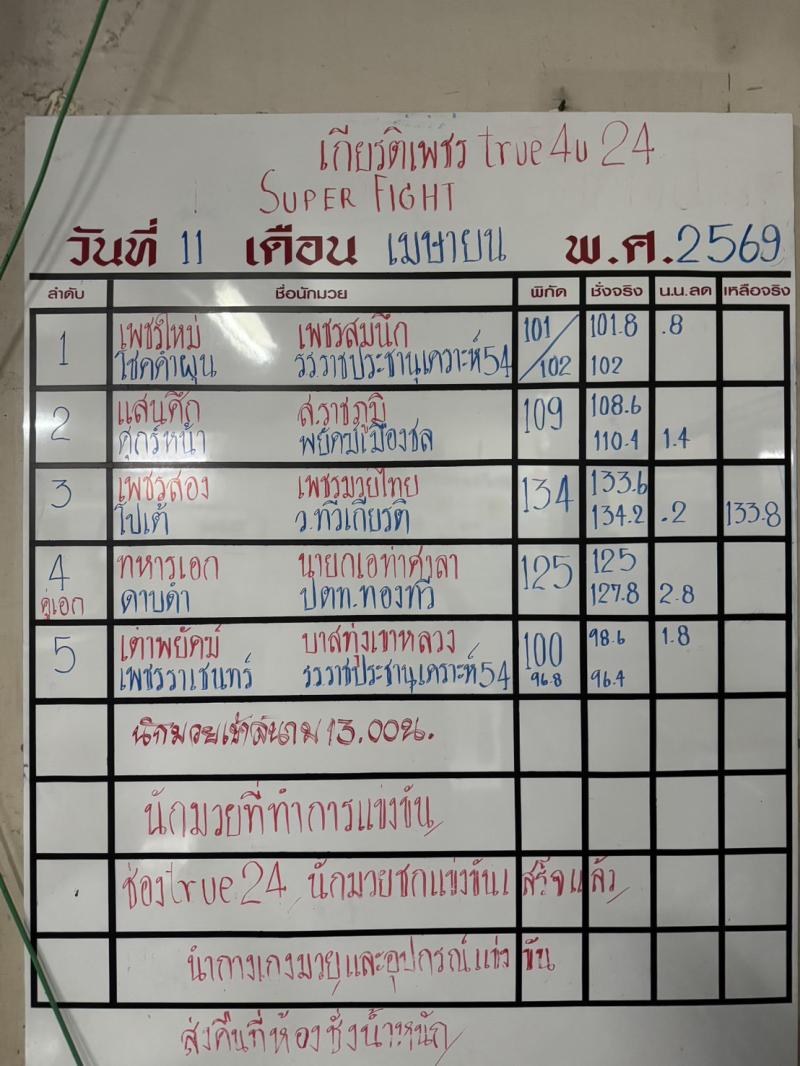 เกียรติเพชร true4u 24
SUPER FIGHT
วันที่ 11 เดือน เมษายน พ.ศ. 2569
ลำดับ ชื่อนักมวย พิกัด ชั่งจริง น.น.ลด เหลือจริง
1 เพชรใหม่ เพชรสมนึก 101/ 101.8 .8
โชคคำผุน รร.ราชประชานุเคราะห์54 /102 102
2 แสนศึก ส.ราชภูมิ 109 108.6
ศุกร์หน้า พยัคฆ์เมืองชล 110.4 1.4
3 เพชรสอง เพชรมวยไทย 134 133.6
โปเต้ ว.ทวีเกียรติ 134.2 .2 133.8
4 ทหารเอก นายกเอท่าศาลา 125 125
คู่เอก ดาบดำ ปตท.ทองทวี 127.8 2.8
5 เต่าพยัคฆ์ บาสทุ่งเขาหลวง 100 98.6 1.8
เพชรราเชนทร์ รร.ราชประชานุเคราะห์54 96.8 96.4
นักมวยเข้าสนาม 13.00น.
นักมวยที่ทำการแข่งขัน
ช่องtrue24 นักมวยชกแข่งขันเสร็จแล้ว
นำกางเกงมวยและอุปกรณ์แข่งขัน
ส่งคืนที่ห้องชั่งน้ำหนัก